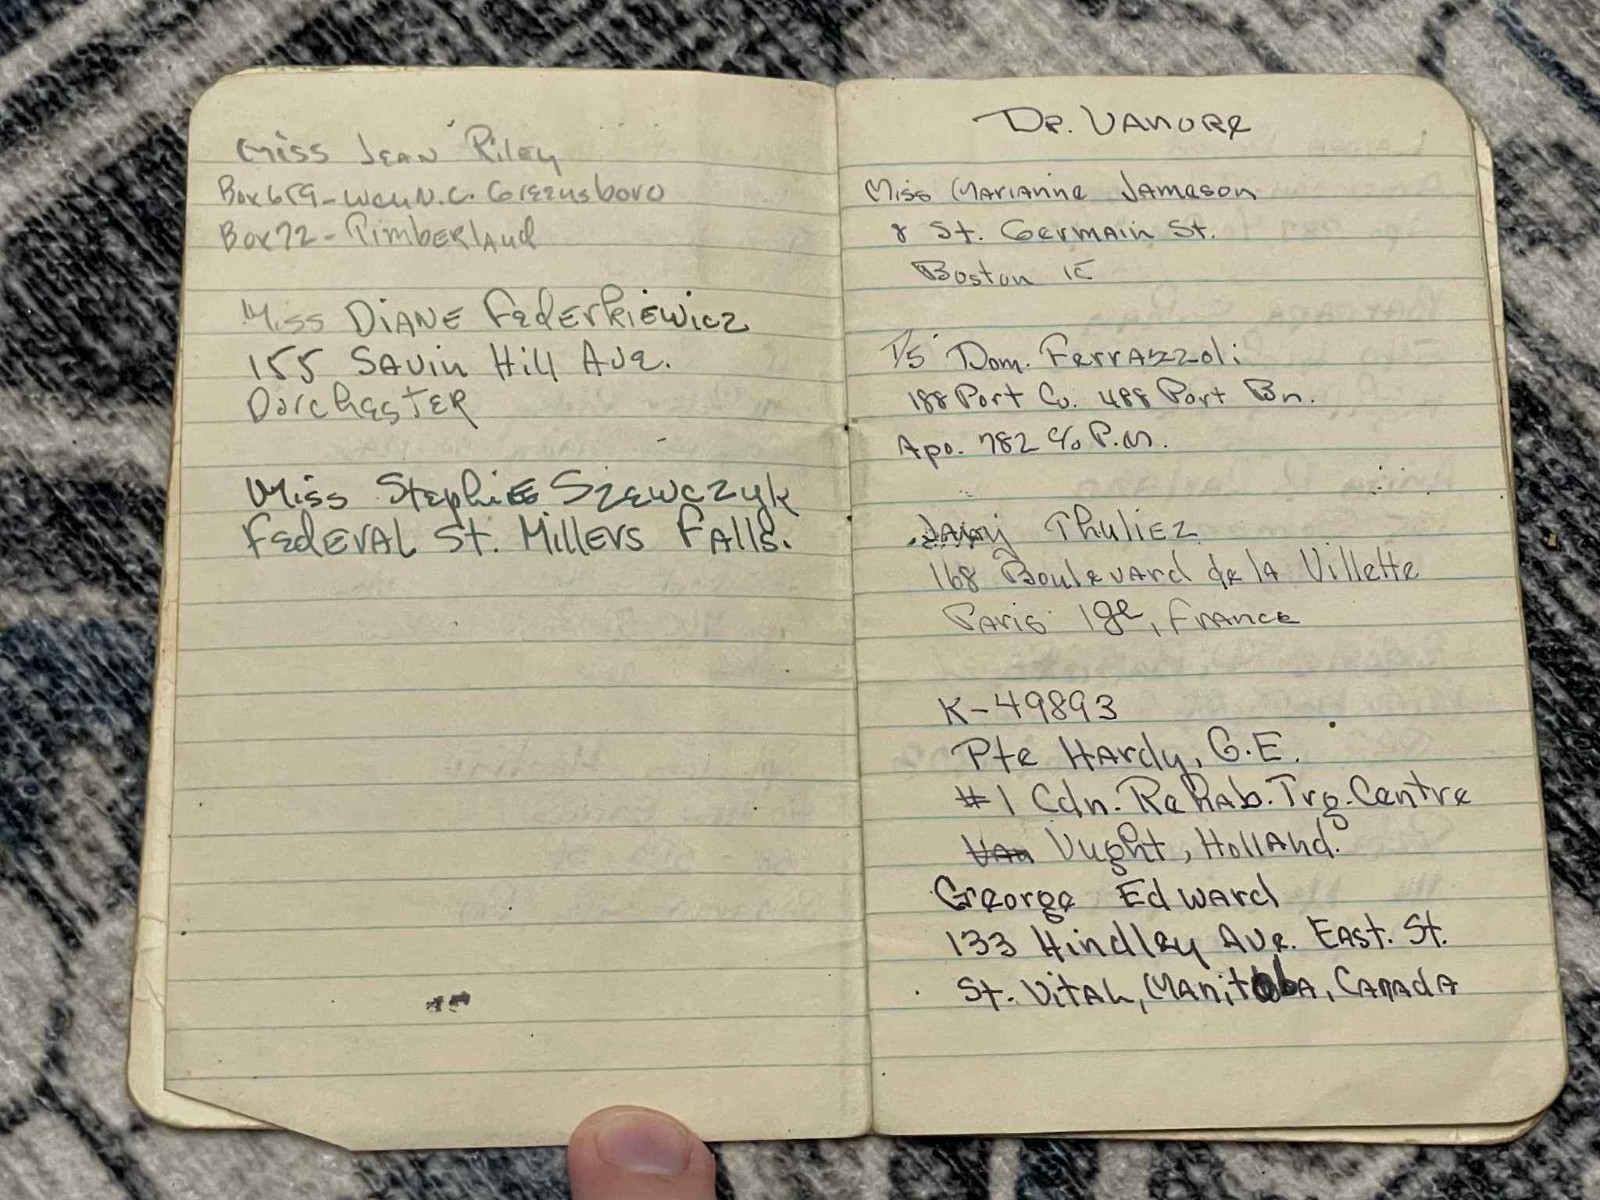 Miss Jean Riley
Box 659 - WCUN.C. Greensboro
Box 72 - Timberland
Miss Diane Federkiewicz
155 Savin Hill Ave.
Dorchester
Miss Stephie Szewczyk
Federal St. Millers Falls.
Dr. Vanore
Miss Marianne Jameson
8 St. Germain St.
Boston 15
T/5 Dom. Ferrazzoli
188 Port Co. 488 Port Bn.
Apo. 782 c/o P.M.
Thuliez
168 Boulevard de la Villette
Paris 19e, France
K-49893
Pte Hardy, G.E.
#1 Cdn. Rehab. Trg. Centre
Van Vught, Holland.
George Edward
133 Hindley Ave. East. St.
St. Vital, Manitoba, Canada